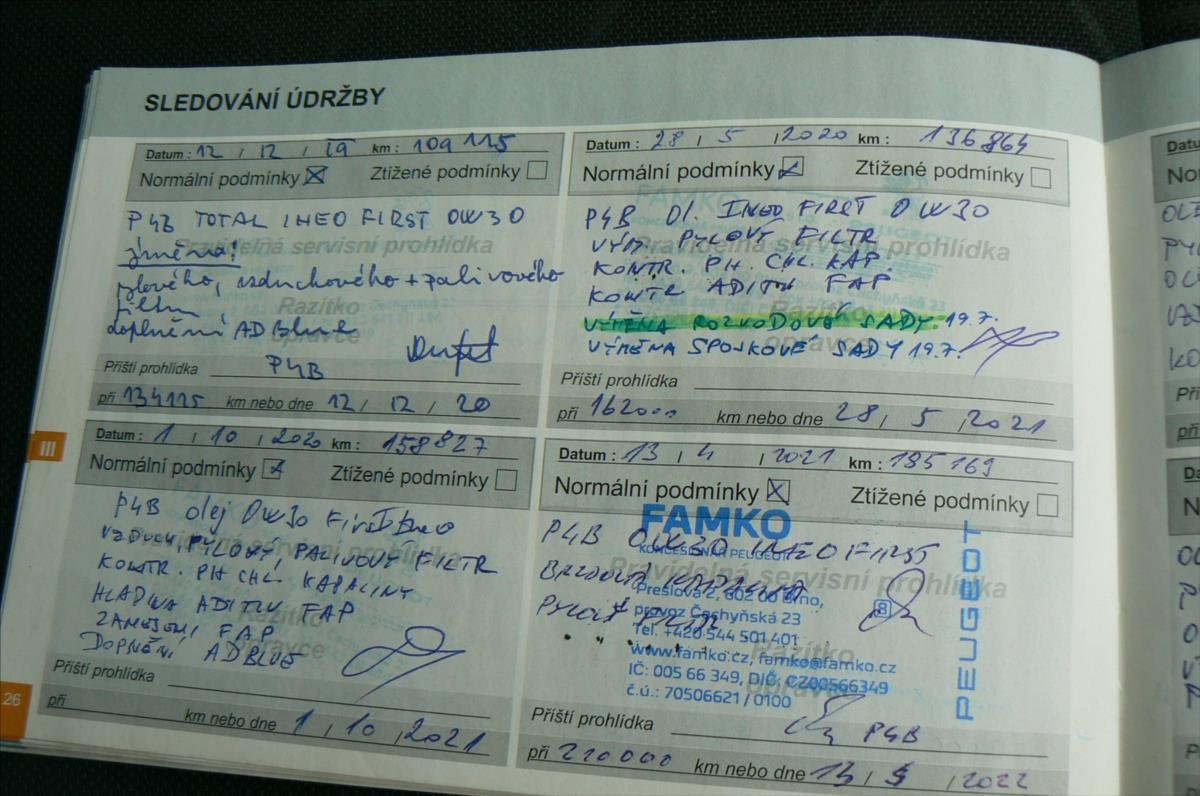 SLEDOVÁNÍ ÚDRŽBY
Datum : 12 / 12 / 19 km : 109 115
Normální podmínky Ztížené podmínky
P4B TOTAL INEO FIRST 0W30
Pravidelná servisní prohlídka
výměna!
pylového, vzduchového + palivového
filtru
Razítko
doplnění AD Blue
opravce
Příští prohlídka P4B
při 134115 km nebo dne 12 / 12 / 20
Datum : 28 / 5 / 2020 km : 136864
Normální podmínky Ztížené podmínky
FAMKO
P4B Ol. INEO FIRST 0W30
VÝM. PYLOVÝ FILTR
Pravidelná servisní prohlídka
KONTR. PH. CHL. KAP.
KONTR. ADITIV FAP
Razítko
VÝMĚNA ROZVODOVÉ SADY 19.7.
opravce
VÝMĚNA SPOJKOVÉ SADY 19.7.
Příští prohlídka
při 162000 km nebo dne 28 / 5 / 2021
III
Datum : 1 / 10 / 2020 km : 158827
Normální podmínky Ztížené podmínky
P4B olej 0W30 First Ineo
VZDUCH, PYLOVÝ, PALIVOVÝ FILTR
Pravidelná servisní prohlídka
KONTR. PH CHL. KAPALINY
HLADINA ADITIV FAP
Razítko
ZANESENÍ FAP
opravce
DOPNĚNÍ ADBLUE
Příští prohlídka
při km nebo dne 1 / 10 / 2021
Datum : 13 / 4 / 2021 km : 185169
Normální podmínky Ztížené podmínky
FAMKO
P4B 0W30 INEO FIRST
KONCESIONÁŘ PEUGEOT
Pravidelná servisní prohlídka
BRZDOVÁ KAPALINA
Přeslova 2, 602 00 Brno,
PYLOVÝ FILTR
provoz Čechyňská 23
8
Tel. +420 544 501 401
Razítko
www.famko.cz, famko@famko.cz
IČ: 005 66 349, DIČ: CZ00566349
opravce
č.ú.: 70506621 / 0100
PEUGEOT
Příští prohlídka P4B
při 210000 km nebo dne 13 / / 2022
26
Datu